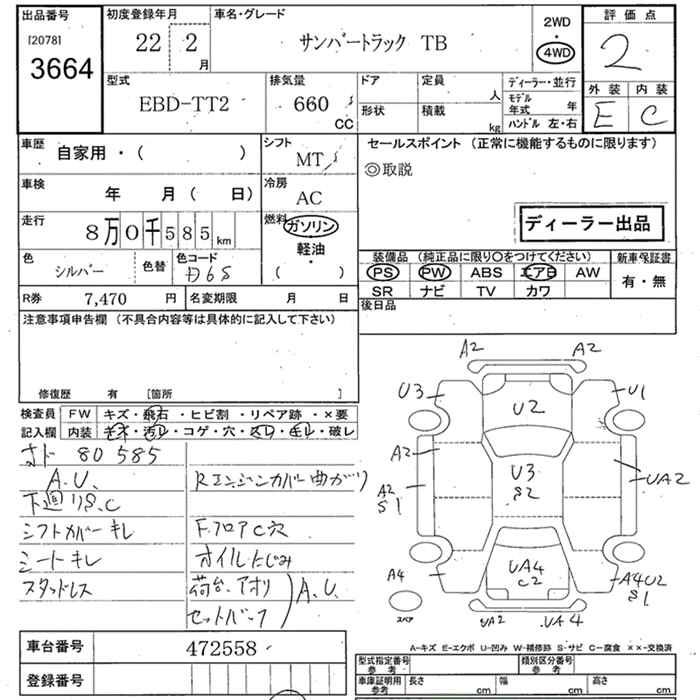 出品番号
[2078]
3664
初度登録年月
22 2 月
車名・グレード
サンバートラック TB
2WD
4WD
評価点
2
外装 内装
E C
型式
EBD-TT2
排気量
660 CC
ドア
定員 人
形状
積載 kg
ディーラー・並行
モデル年式 年
ハンドル 左・右
車歴
自家用・( )
シフト
MT
車検
年 月( 日)
冷房
AC
走行
8万0千585km
燃料
ガソリン・軽油・( )
色
シルバー
色替
色コード
D6S
R券 7,470 円
名変期限 月 日
セールスポイント (正常に機能するものに限ります)
◎取説
ディーラー出品
装備品 (純正品に限り○をつけてください)
PS PW ABS エアB AW
SR ナビ TV カワ
新車保証書
有・無
後日品
注意事項申告欄 (不具合内容等は具体的に記入して下さい)
修復歴 有 [箇所 ]
検査員記入欄
FW キズ・飛石・ヒビ割・リペア跡・×要
内装 キズ・汚レ・コゲ・穴・スレ・キレ・破レ
オド 80585
A.U.
下廻りS.C
シフトカバーキレ
シートキレ
スタッドレス
Rエンジンカバー曲がり
FフロアC穴
オイルにじみ
荷台、アオリ
セットバック
A.U.
A2 A2
U3 U1
U2
A2
U3
S2
UA2
A2
S1
A4
UA4
C2
A4U2
S1
UA2 UA4
スペア
A-キズ E-エクボ U-凹み W-補修跡 S-サビ C-腐食 ××-交換済
車台番号
472558
登録番号
型式指定番号
参考
類別区分番号
参考
車庫証明用
参考
長さ cm
幅 cm
高さ cm